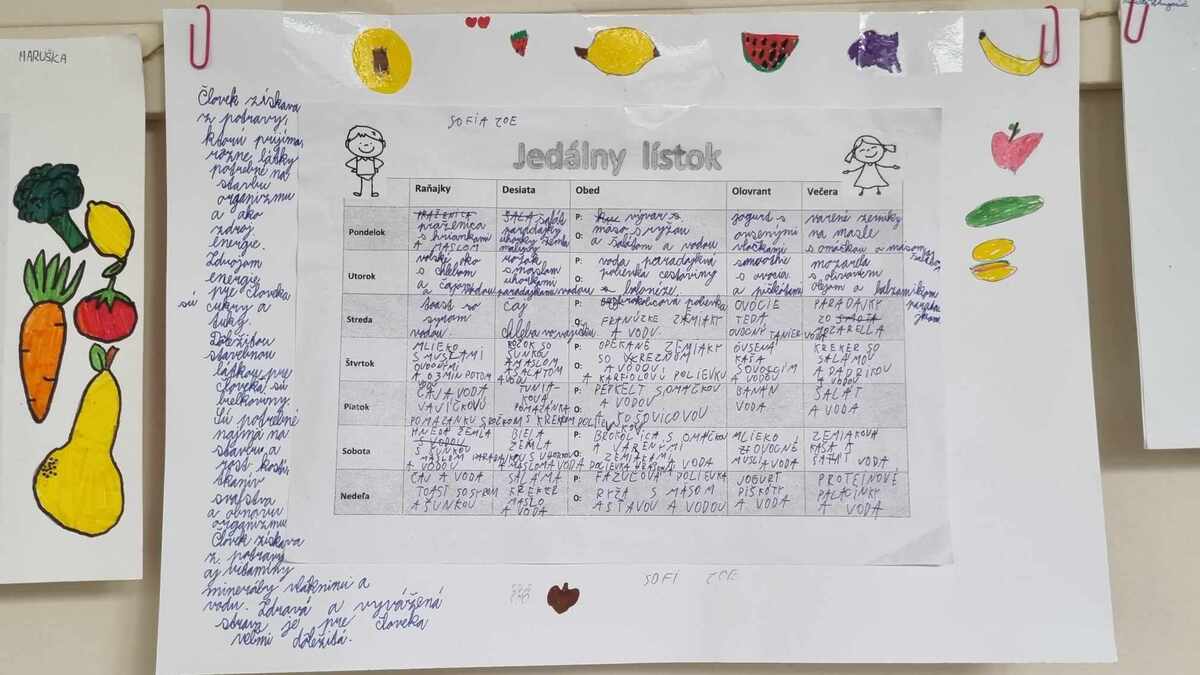 MARUŠKA
Človek získava
z potravy,
ktorú príjima,
rôzne látky
potrebné na
stavbu
organizmu
a ako
zdroj
energie.
Zdrojom
energie
pre človeka
sú cukry a
tuky.
Dôležitou
stavebnou
látkou pre
človeka sú
bielkoviny.
Sú potrebné
najmä na
stavbu a
rast kostí,
tkanív
svalstva
a obnovu
organizmu
Človek získava
z potravy
aj vitamíny
minerály vlákninu a
vodu. Zdravá a vyvážená
strava je pre človeka
veľmi dôležitá.
SOFIA ZOE
Jedálny lístok
Raňajky Desiata Obed Olovrant Večera
Pondelok
PRAŽENICA
praženica
s hriankami
A MASLOM
ŠALÁ šalát
paradajky
uhorky žemľa
P: vývar s
mäso s ryžou
O: a šalátom a vodou
jogurt s
ovsenými
vločkami
varené zemiky
na masle
s omáčkou a mäsom
Utorok
volské oko
s chlebom
a čajom
rožok
s maslom
uhorkami
paradajkami a vodou
P: voda paradajková
polievka cestoviny
O: a boloneze
smoothie
s ovocia
a piškótami
mozarela
s olivovým
olejom a balzamikom
Streda
toast so
syrom
vodou.
čaj
chleba vo vajíčku
P: brokolicová polievka
O: FRANÚZKE ZEMIAKY
A VODU.
OVOCIE
TEDA
OVOCNÝ TANIER VODA
PARADAJKY
ZO
MOZARELLA
Štvrtok
MLIEKO
S MUSLAMI
OVOCNÝMI
A O 3 MIN POTOM
ČAJ
ROŽOK SO
ŠUNKOU
A MASLOM
A ŠALÁTOM
A VODU
P: OPEKANÉ ZEMIAKY
SO REZŇOM
O: A VODOU
A KARFIOLOVÚ POLIEVKU
OVSENÁ
KAŠA
S OVOCÍM
A VODOU
KREKER SO
SALÁMOU
A PAPRIKOU
A VODU
Piatok
ČAJ A VODA
VAJÍČKOVÚ
POMAZÁNKU S ROŽKOM
TUNIA-
KOVÁ
POMAZÁNKA
S KREKROM
P: PERKELT S OMÁČKOU
A VODOU
O: A ŠOŠOVICOVOU
POLIEVKOU
BANÁN
VODA
ŠALÁT
A VODA
Sobota
HNEDÁ ŽEMĽA
S VODOU
S ŠUNKOU
MASLOM PARADAJKOU
A VODOU
BIELA
ŽEMĽA
S UHORKOU
A MASLOM A VODA
P: BROKOLICA S OMÁČKOU
A VARENÝMI
O: ZEMIAKAMI
POLIEVKA A VODA
MLIEKO
Z OVOCNÉ
MUSLI A VODA
ZEMIAKOVÁ
KAŠA A
ŠALÁT VODA
Nedeľa
ČAJ A VODA
TOAST SO SYROM
A ŠUNKOU
SALÁMA
KREKER
MASLO
A VODA
P: FAZUĽOVÁ POLIEVKA
O: RYŽA S MÄSOM
A ŠŤAVOU A VODOU
JOGURT
PIŠKÓTY
A VODA
PROTEÍNOVÉ
PALACINKY
A VODA
SOFI ZOE